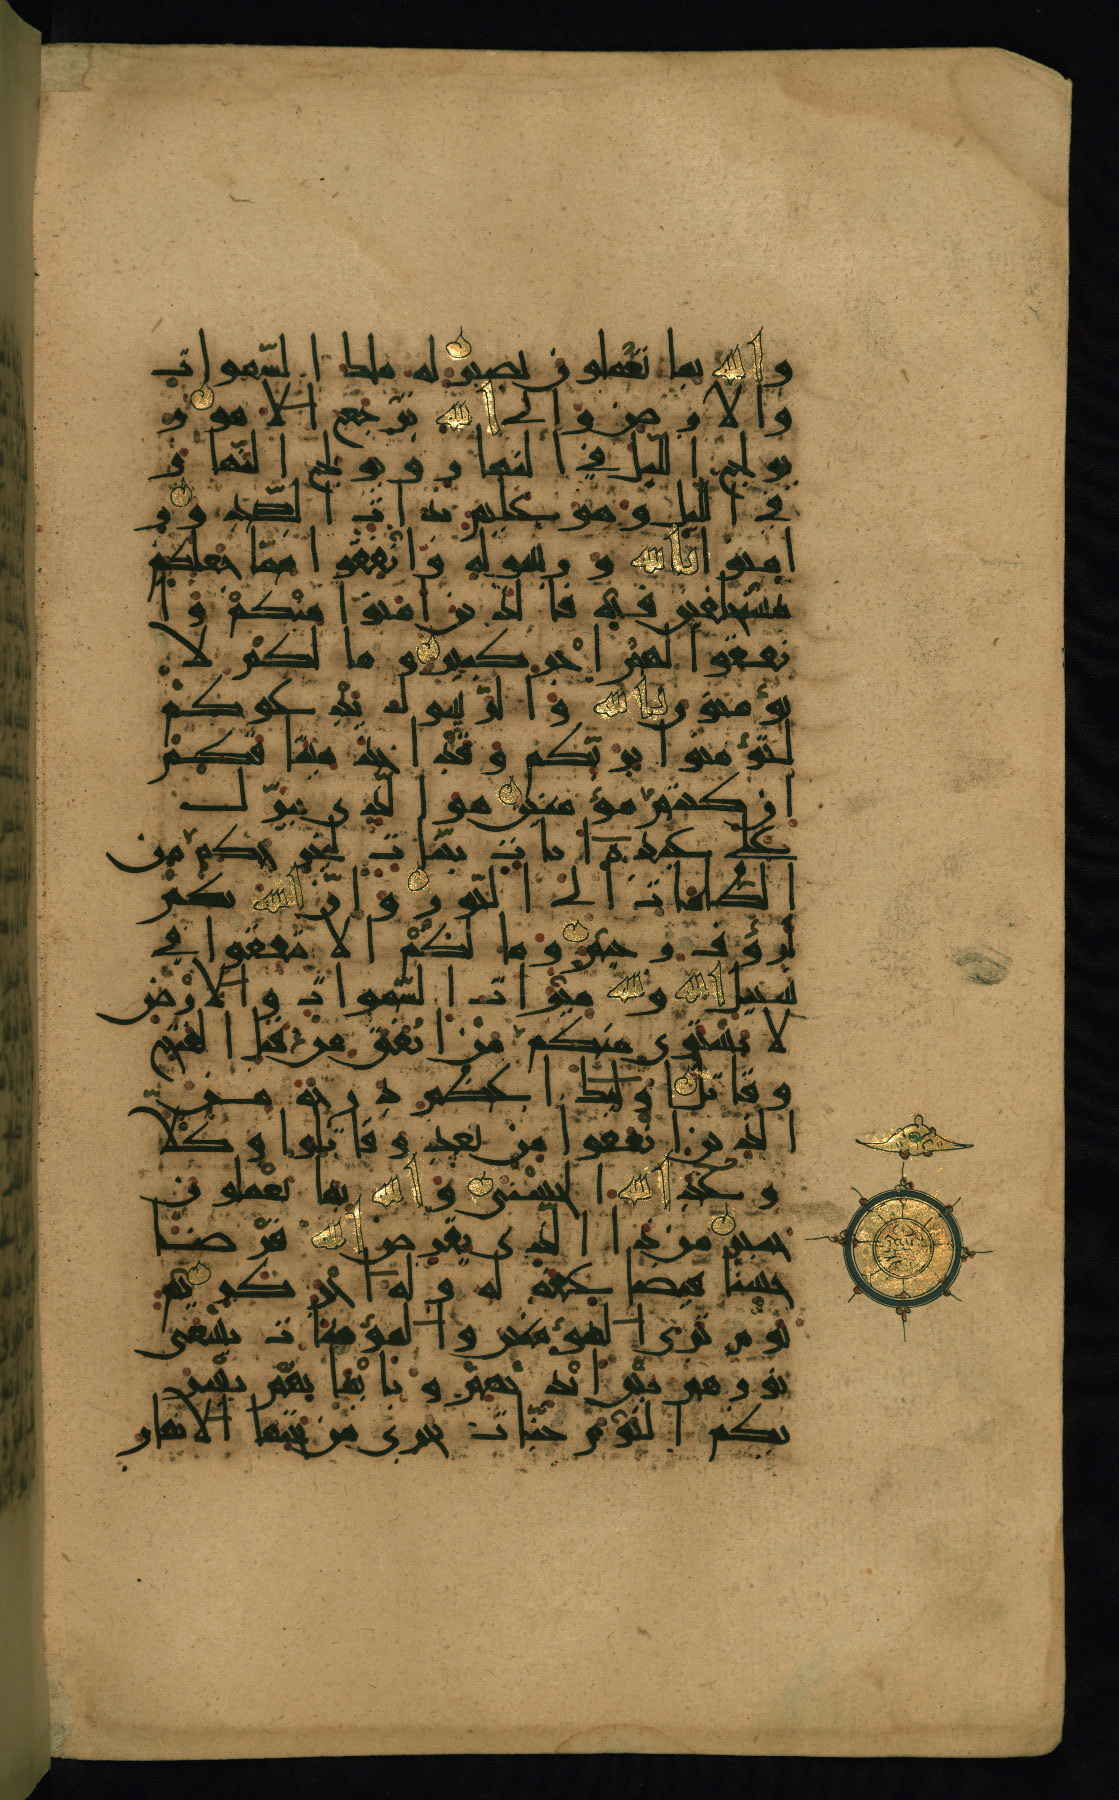 والله بما تعملون بصير له ملك السموات
والارض والى الله ترجع الامور
يولج الليل في النهار ويولج النهار
في الليل وهو عليم بذات الصدور
امنوا بالله ورسوله وانفقوا مما جعلكم
مستخلفين فيه فالذين امنوا منكم وا
نفقوا لهم اجر كبير وما لكم لا
تؤمنون بالله والرسول يدعوكم
لتؤمنوا بربكم وقد اخذ ميثاقكم
ان كنتم مؤمنين هو الذي ينزل
على عبده ايات بينات ليخرجكم من
الظلمات الى النور وان الله بكم
لرؤف رحيم وما لكم الا تنفقوا في
سبيل الله ولله ميراث السموات والارض
لا يستوي منكم من انفق من قبل الفتح
وقاتل اولئك اعظم درجة من
الذين انفقوا من بعد وقاتلوا وكلا
وعد الله الحسنى والله بما تعملون
خبير من ذا الذي يقرض الله قرضا
حسنا فيضاعفه له وله اجر كريم
يوم ترى المؤمنين والمؤمنات يسعى
نورهم بين ايديهم وبايمانهم بشر
يكم اليوم جنات تجري من تحتها الانهار